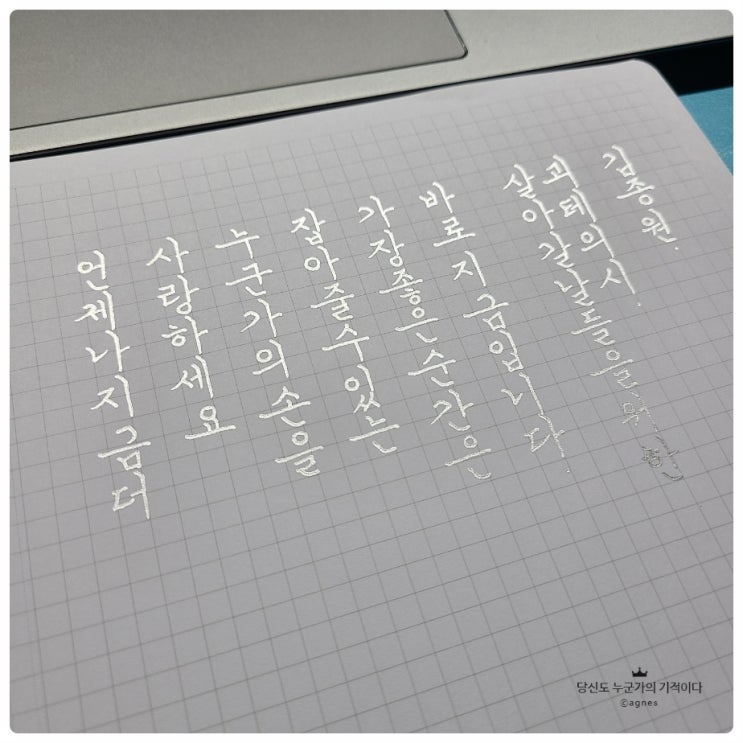 언제나 지금 더
사랑하세요
누군가의 손을
잡아줄 수 있는
가장 좋은 순간은
바로 지금입니다.
살아갈 날들을 위한
괴테의 시.
김종원.
당신도 누군가의 기적이다
©agnes